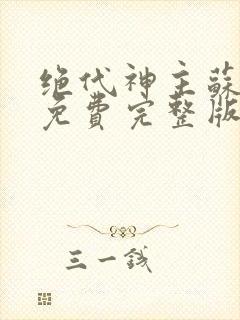 绝代神主蘇
免費完整版
三一錢